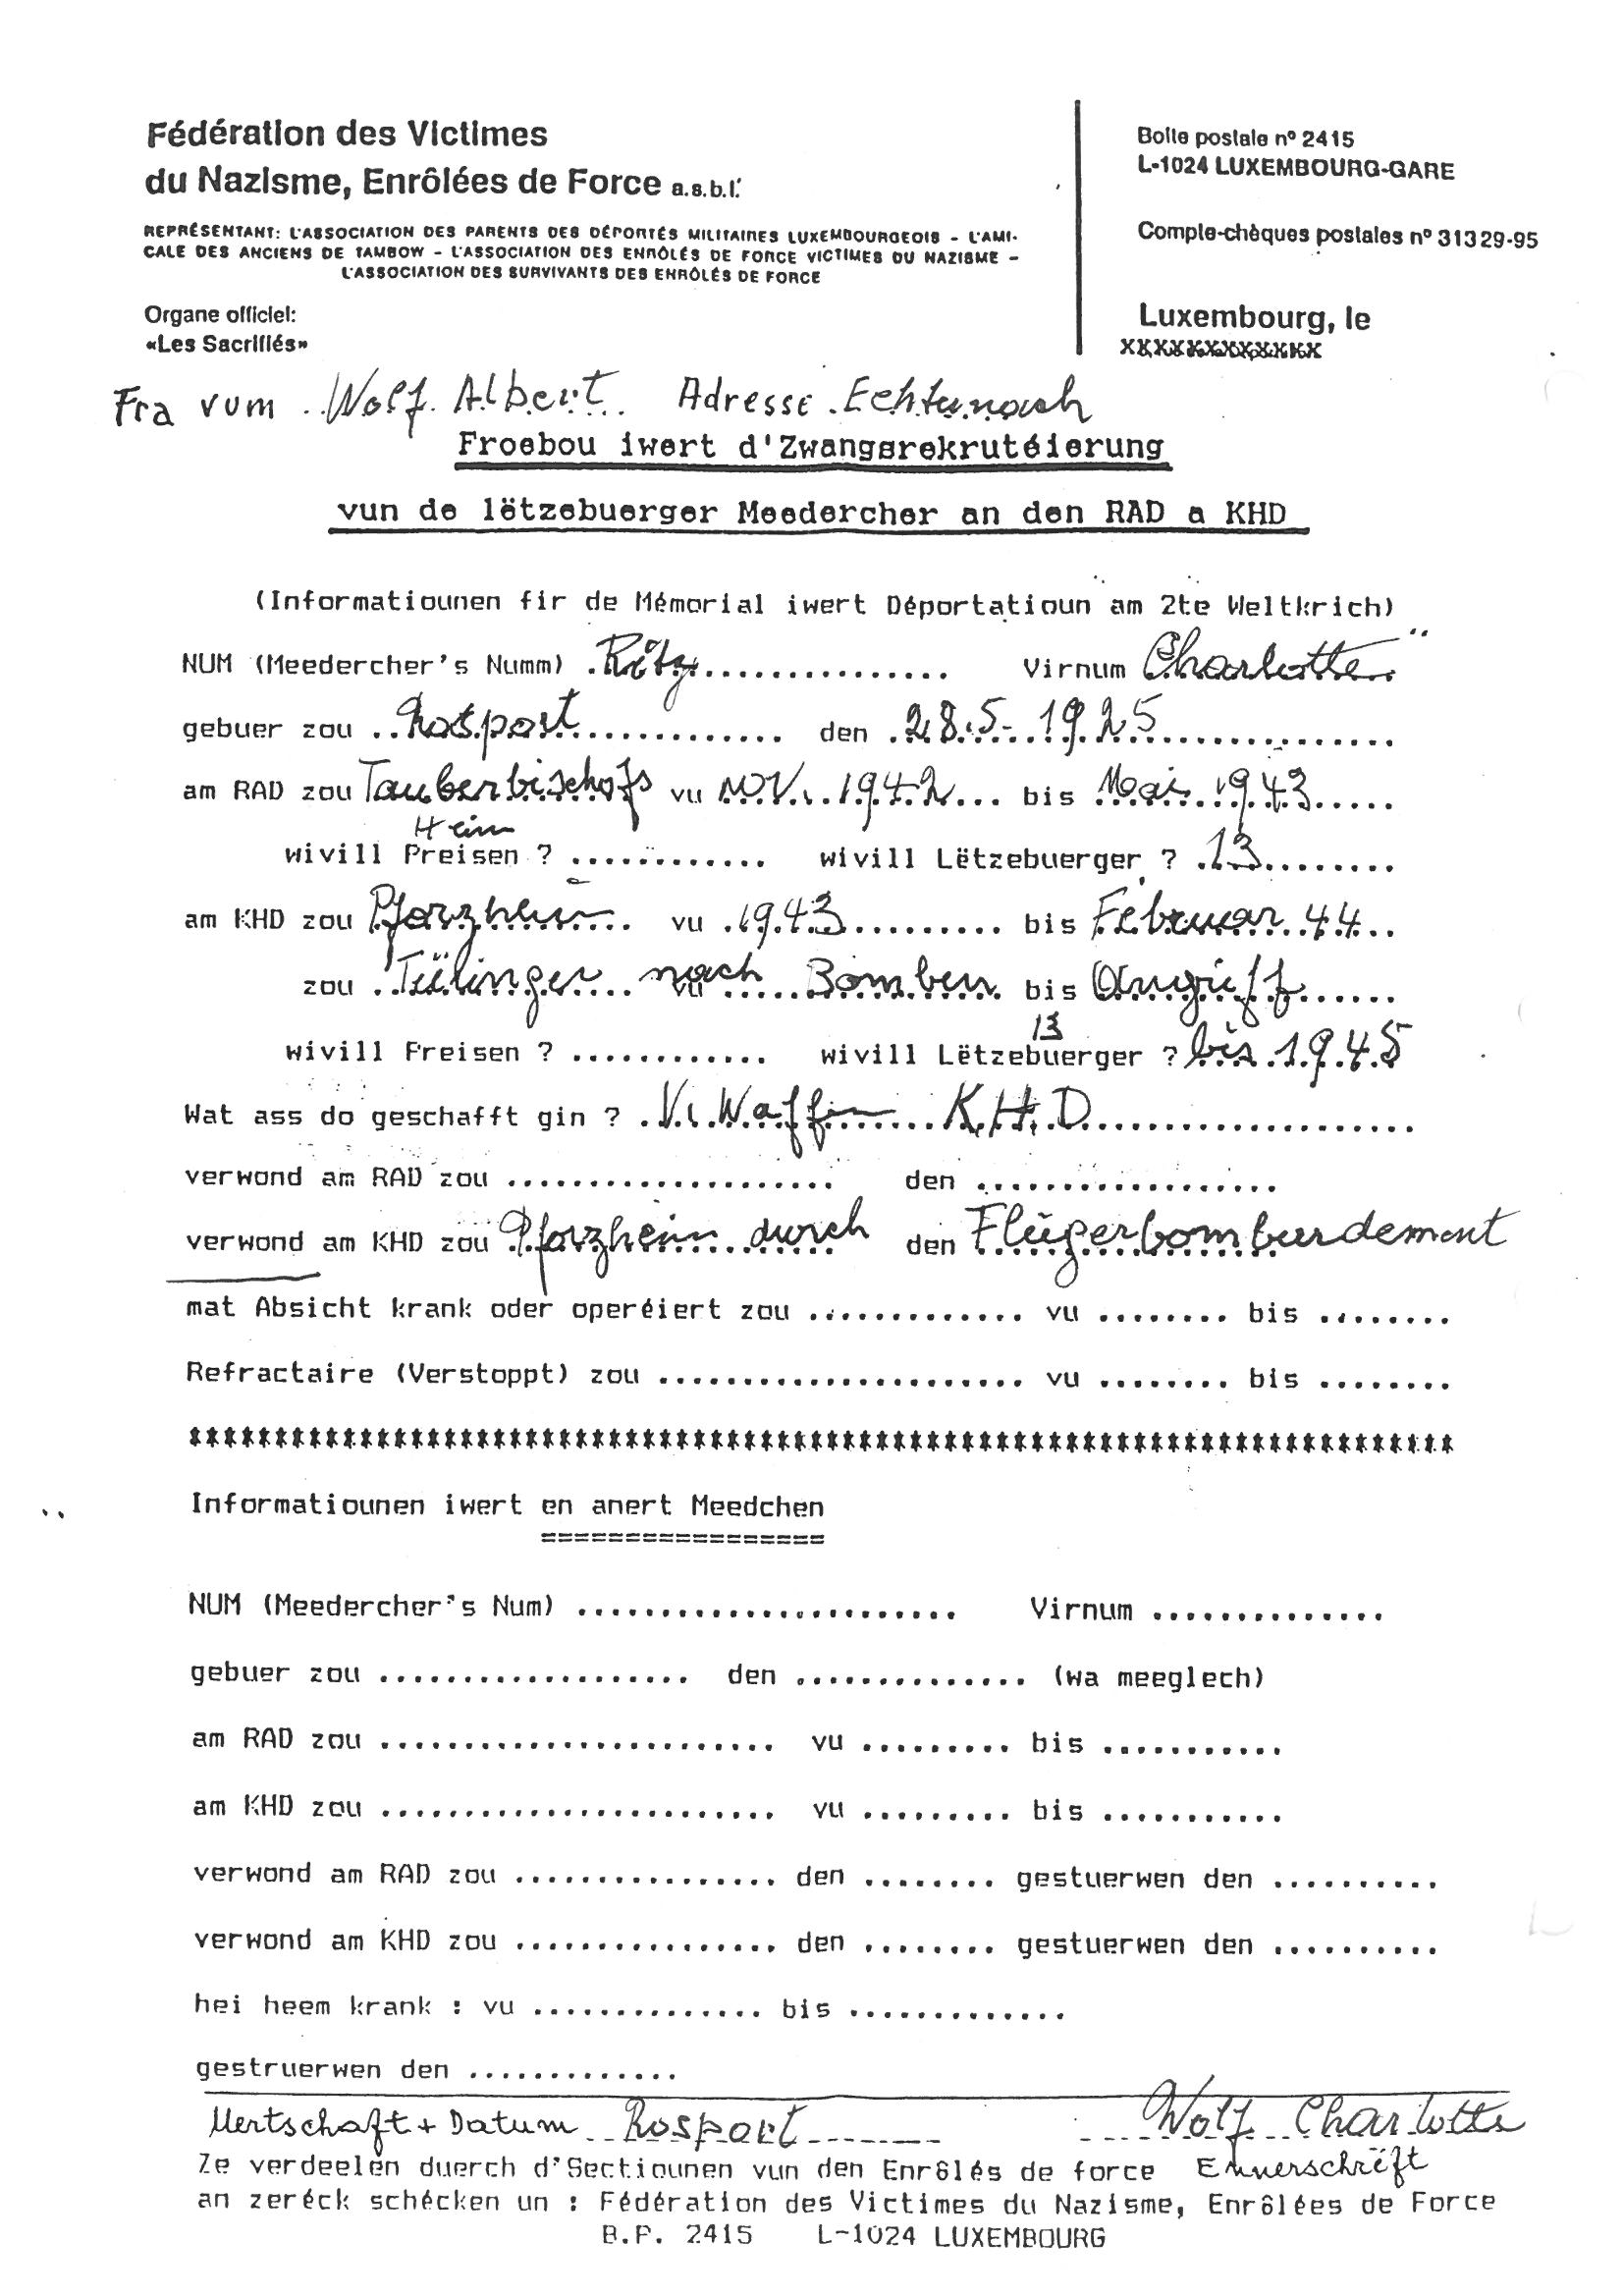 Fédération des Victimes
du Nazisme, Enrôlées de Force a.s.b.l.
REPRÉSENTANT: L'ASSOCIATION DES PARENTS DES DÉPORTÉS MILITAIRES LUXEMBOURGEOIS - L'AMI-
CALE DES ANCIENS DE TAMBOW - L'ASSOCIATION DES ENRÔLÉS DE FORCE VICTIMES DU NAZISME -
L'ASSOCIATION DES SURVIVANTS DES ENRÔLÉS DE FORCE
Organe officiel:
«Les Sacrifiés»
Boîte postale nº 2415
L-1024 LUXEMBOURG-GARE
Compte-chèques postales nº 31329-95
Luxembourg, le
xxxxxxxxxxxxx
Fra vum Wolf Albert Adresse Echternach
Froebou iwert d'Zwangsrekrutéierung
vun de lëtzebuerger Meedercher an den RAD a KHD
(Informatiounen fir de Mémorial iwert Déportatioun am 2te Weltkrich)
NUM (Meedercher's Numm) .Ritz............... Virnum Charlotte
gebuer zou ..Rosport............ den .28.5.1925..............
am RAD zou Tauberbischofs vu NOV. 1942... bis Mai 1943.....
Heim
wivill Preisen ? ............ wivill Lëtzebuerger ? .13........
am KHD zou Pforzheim. vu .1943.......... bis Februar 44..
zou .Tülinger nach vu Bomben bis Angriff......
13
wivill Preisen ? ............ wivill Lëtzebuerger ? bis 1945
Wat ass do geschafft gin ? .V. Waffen K.H.D....................
verwond am RAD zou ..................... den ...................
verwond am KHD zou Pforzheim durch den Flügerbomburdement
mat Absicht krank oder operéiert zou ............. vu ........ bis ........
Refractaire (Verstoppt) zou ....................... vu ........ bis ........
**************************************************************************
Informatiounen iwert en anert Meedchen
=================
NUM (Meedercher's Num) ....................... Virnum ..............
gebuer zou ................... den .............. (wa meeglech)
am RAD zou ........................ vu ......... bis ...........
am KHD zou ........................ vu ......... bis ...........
verwond am RAD zou ................ den ........ gestuerwen den ..........
verwond am KHD zou ................ den ........ gestuerwen den ..........
hei heem krank : vu .............. bis .............
gestruerwen den .............
Uertschaft + Datum Rosport Wolf Charlotte
Ze verdeelen duerch d'Sectiounen vun den Enrôlés de force Ennerschrëft
an zeréck schécken un : Fédération des Victimes du Nazisme, Enrôlées de Force
B.P. 2415 L-1024 LUXEMBOURG